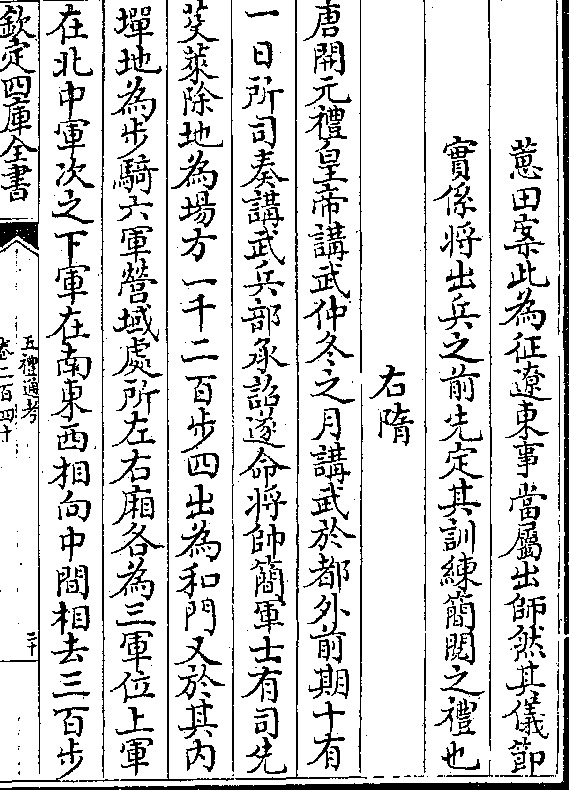 蕙田案此為征遼東事當屬出師然其儀節
實係將出兵之前先定其訓練簡閱之禮也
右隋
唐開元禮皇帝講武仲冬之月講武於都外前期十有
一日所司奏講武兵部承詔遂命將帥簡軍士有司先
芟萊除地為場方一千二百步四出為和門又於其内
墠地為步騎六軍營域處所左右廂各為三軍位上軍
在北中軍次之下軍在南東西相向中間相去三百步
欽定四庫全書
五禮通考
卷二百四十
二十